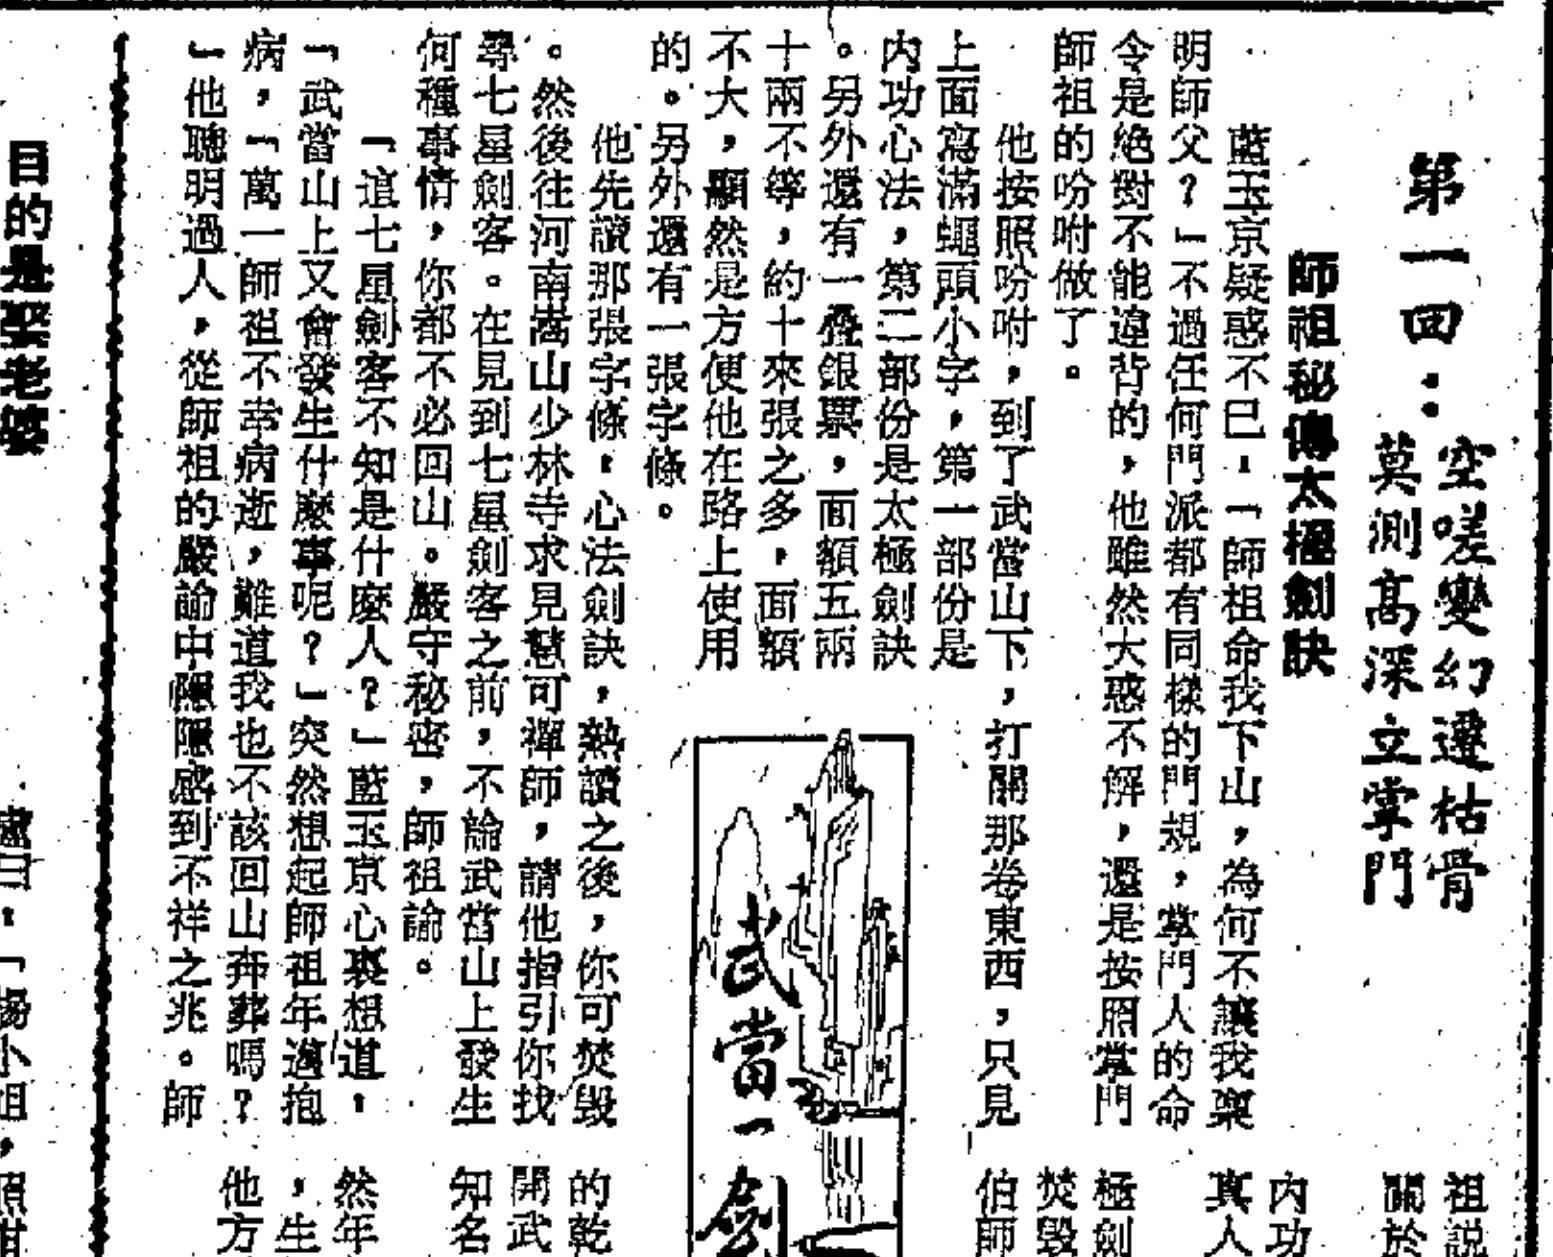 第一回：
空嗟變幻遷枯骨
莫測高深立掌門
師祖秘傳太極劍訣
藍玉京疑惑不已，「師祖命我下山，為何不讓我稟
明師父？」不過任何門派都有同樣的門規，掌門人的命
令是絕對不能違背的，他雖然大惑不解，還是按照掌門
師祖的吩咐做了。
他按照吩咐，到了武當山下，打開那卷東西，只見
上面寫滿蠅頭小字，第一部份是
內功心法，第二部份是太極劍訣
。另外還有一疊銀票，面額五兩
十兩不等，約十來張之多，面額
不大，顯然是方便他在路上使用
的。另外還有一張字條。
他先讀那張字條，心法劍訣，熟讀之後，你可焚毀
。然後往河南嵩山少林寺求見慧可禪師，請他指引你找
尋七星劍客。在見到七星劍客之前，不論武當山上發生
何種事情，你都不必回山。嚴守秘密，師祖諭。
「這七星劍客不知是什麼人？」藍玉京心裏想道，
「武當山上又會發生什麼事呢？」突然想起師祖年邁抱
病，「萬一師祖不幸病逝，難道我也不該回山奔葬嗎？
」他聰明過人，從師祖的嚴諭中隱隱感到不祥之兆。師
武當一劍
祖説
關於
內功
真人
極劍
焚毀
伯師
的乾
開武
知名
然年
，生
他方
目的是娶老婆
楊小姐，照